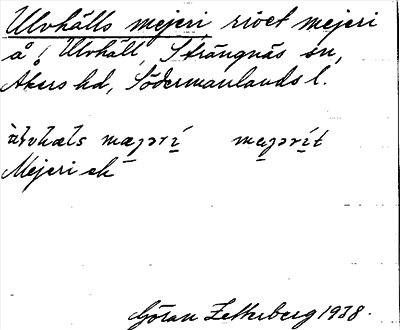 Ulvhälls mejeri, rivet mejeri
å Ulvhäll, Strängnäs sn,
Åkers hd, Södermanlands l.
mejərít
Mejeri ek
Göran Zetterberg 1938.